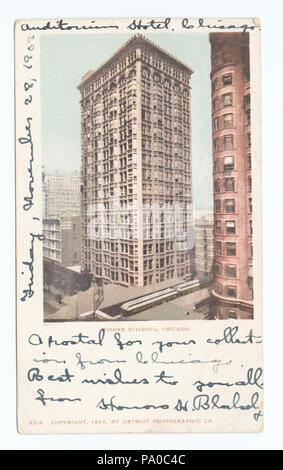 Auditorium Hotel, Chicago
Friday November 28, 1902
FISHER BUILDING, CHICAGO.
A Postal for your collec-
tion from Chicago
Best wishes to you all
from Thomas W.
COPYRIGHT, 1900, BY DETROIT PHOTOGRAPHIC CO.
alamy
PA0C4C
www.alamy.com